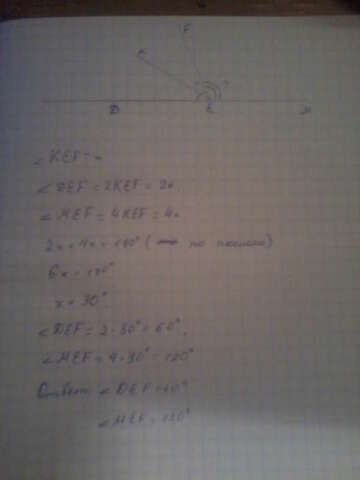 F
K
D E M
∠KEF = x
∠DEF = 2KEF = 2x
∠MEF = 4KEF = 4x
2x + 4x = 180° ( по
6x = 180°
x = 30°.
∠DEF = 2 · 30° = 60°.
∠MEF = 4 · 30° = 120°
Ответ: ∠DEF = 60°
∠MEF = 120°